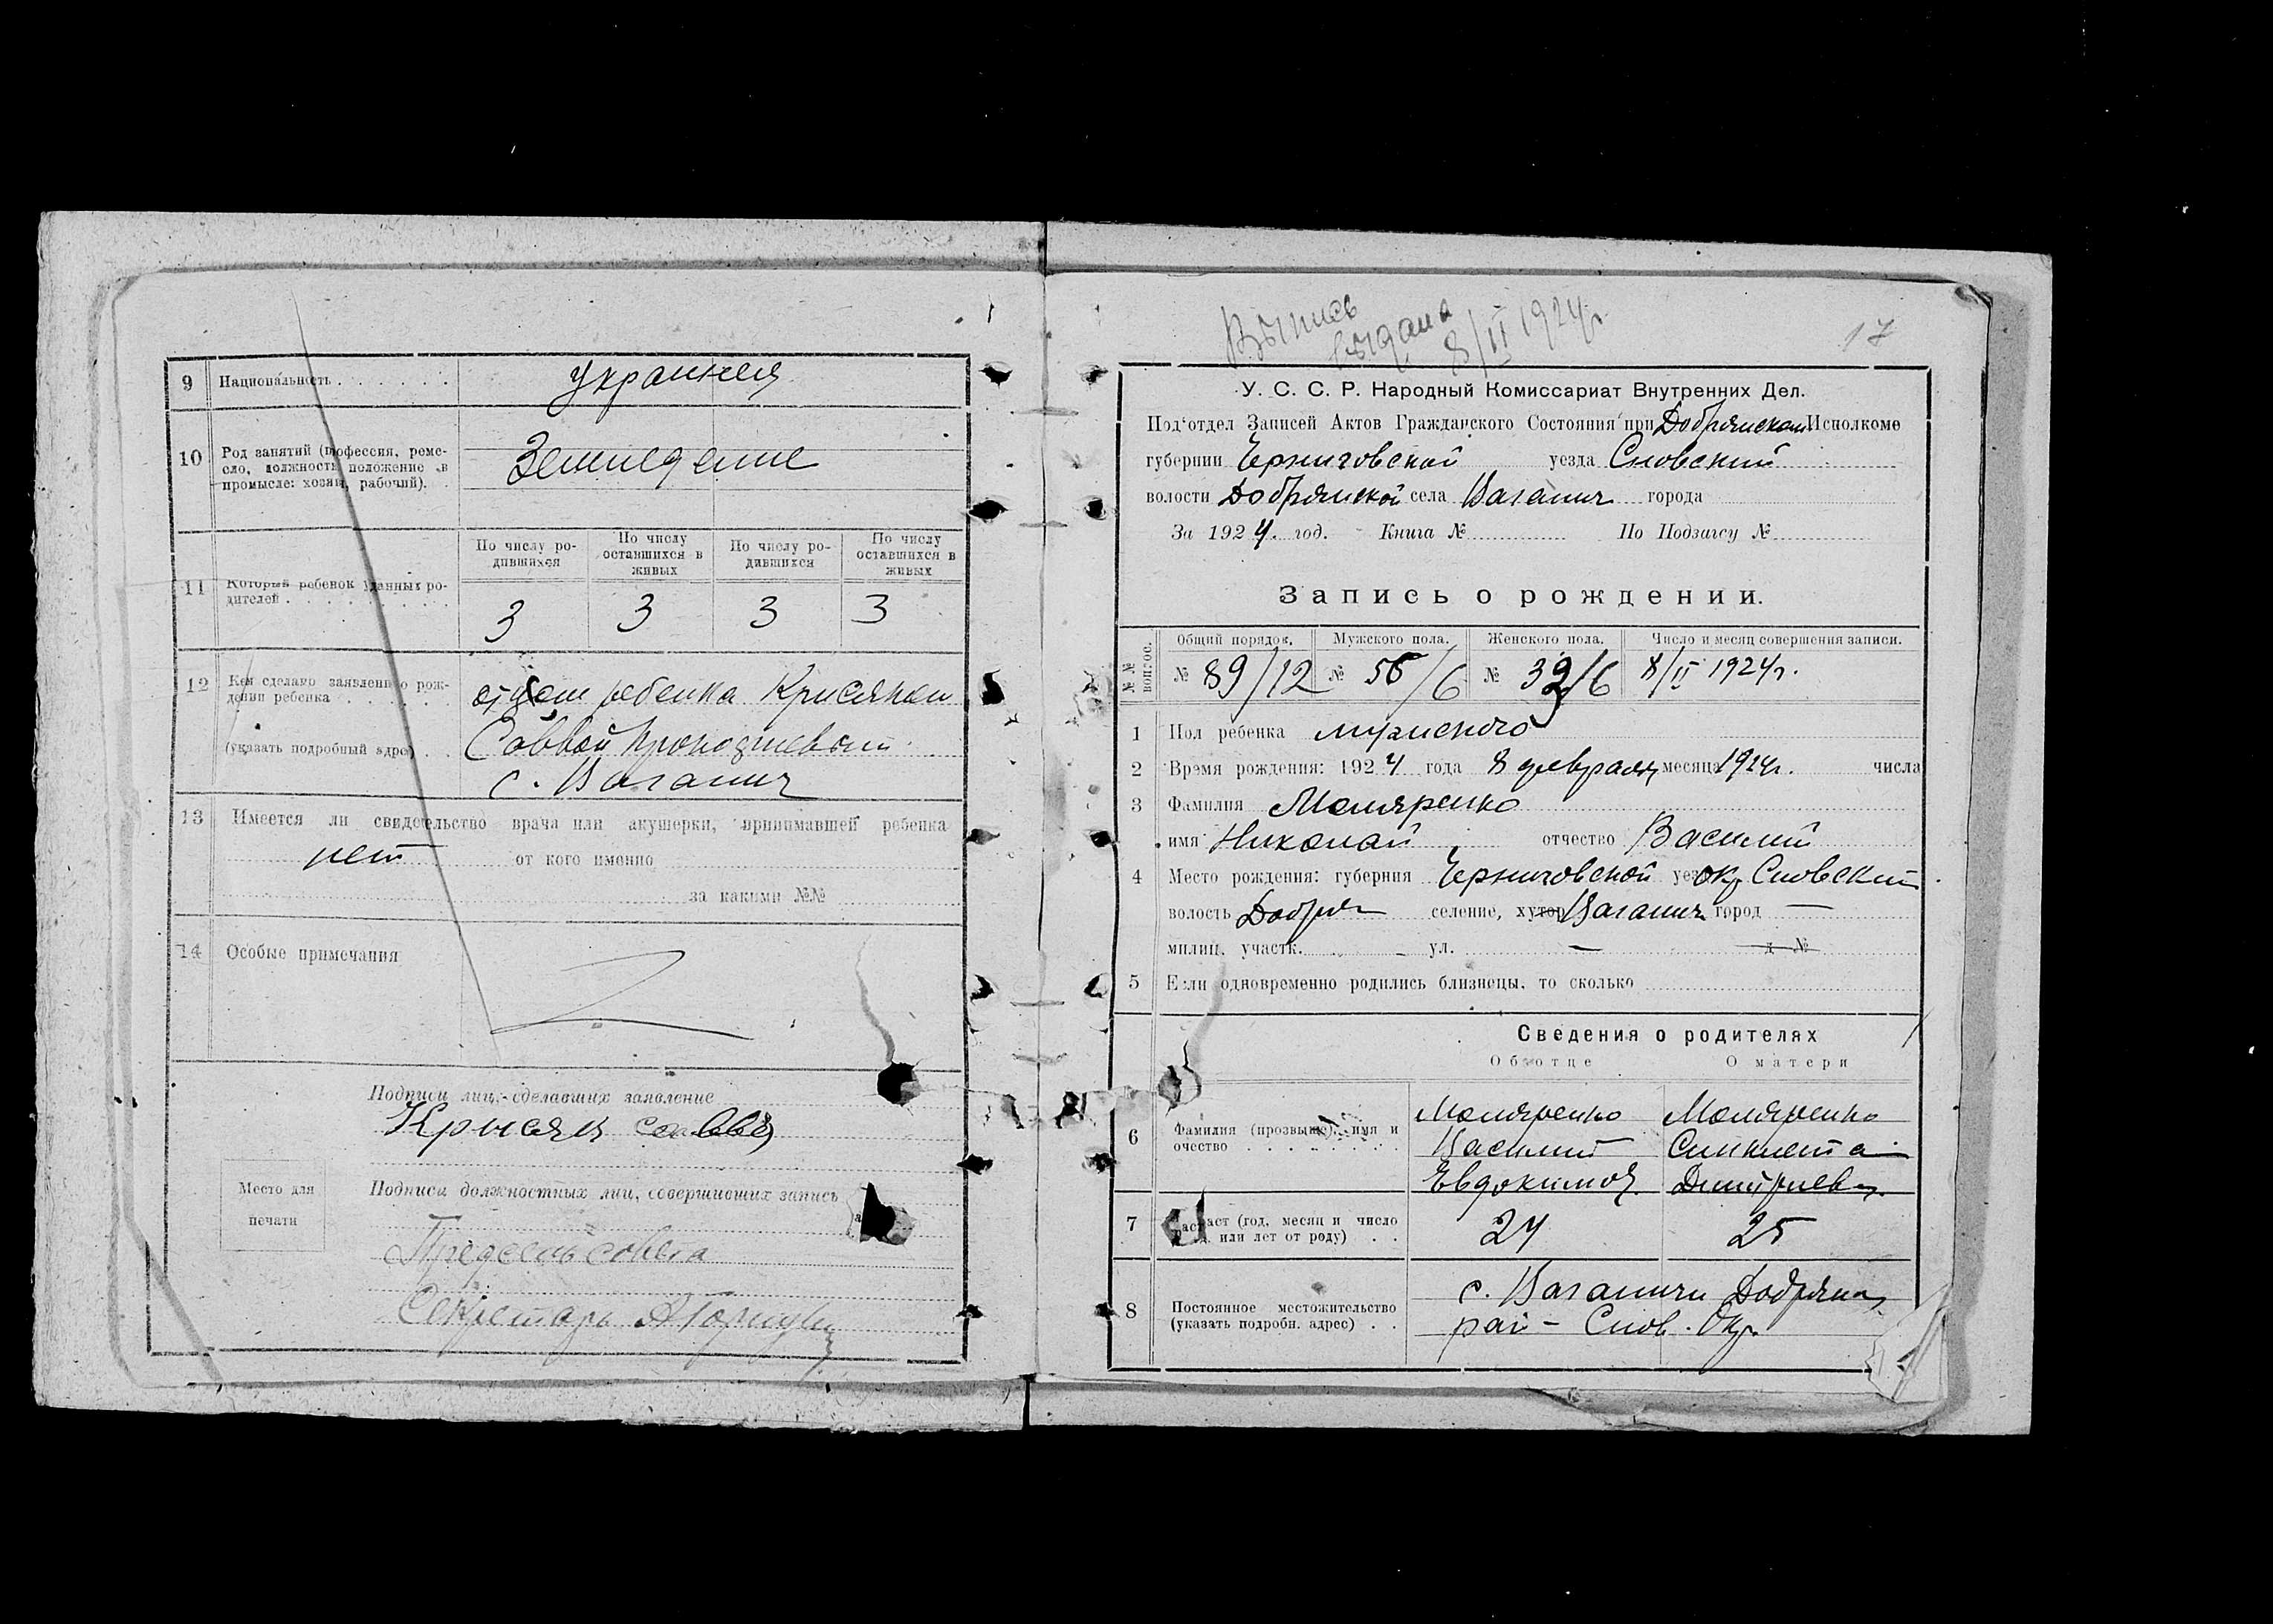 9 Национальность . . . . . . украинея
10 Род занятий (профессия, реме-
сло, должность положение в
промысле: хозяин, рабочий). Земледелие
По числу ро-
дившихся
По числу
оставшихся в
живых
По числу ро-
дившихся
По числу
оставшихся в
живых
11 Который ребенок у данных ро-
дителей . . . . . . . . .
3 3 3 3
12 Кем сделано заявление о рож-
дении ребенка . . . . . . отцом ребенка Крисяном
(указать подробный адрес) . . Саввой
с. Ваганич
13 Имеется ли свидетельство врача или акушерки, принимавшей ребенка
нет от кого именно
за какими №№
14 Особые примечания
Подписи лиц, сделавших заявление
Крысян Савва
Место для
печати
Подписи должностных лиц, совершивших запись
Предсельсовета
Секретарь
Выпись
выдана 8/II 1924г.
17
У. С. С. Р. Народный Комиссариат Внутренних Дел.
Под'отдел Записей Актов Гражданского Состояния при Добрянском Исполкоме
губернии Черниговской уезда Сновский
волости Добрянской села Ваганич города
За 1924. год. Книга № По Подзагсу №
Запись о рождении.
№№ вопрос.
Общий порядок. Мужского пола. Женского пола. Число и месяц совершения записи.
№ 89/12 № 56/6 № 39/6 8/II 1924г.
1 Пол ребенка мужского
2 Время рождения: 1924 года 8 февраля месяца 1924г. числа
3 Фамилия Моляренко
имя Николай отчество Василий
4 Место рождения: губерния Черниговской уез окр Сновский
волость Добрян селение, хутор Ваганич город —
милиц. участк. — ул. — д №
5 Если одновременно родились близнецы, то сколько
Сведения о родителях
Об отце О матери
6 Фамилия (прозвыще), имя и
очество . . . . . . . .
Моляренко
Василий
Евдокимов.
Моляренко
Синклета
Дмитриевн.
7 Возраст (год, месяц и число
или лет от роду) . . 24 25
8 Постоянное местожительство
(указать подробн. адрес) . . с. Ваганичи Добрянск
рай - Снов. Окр.